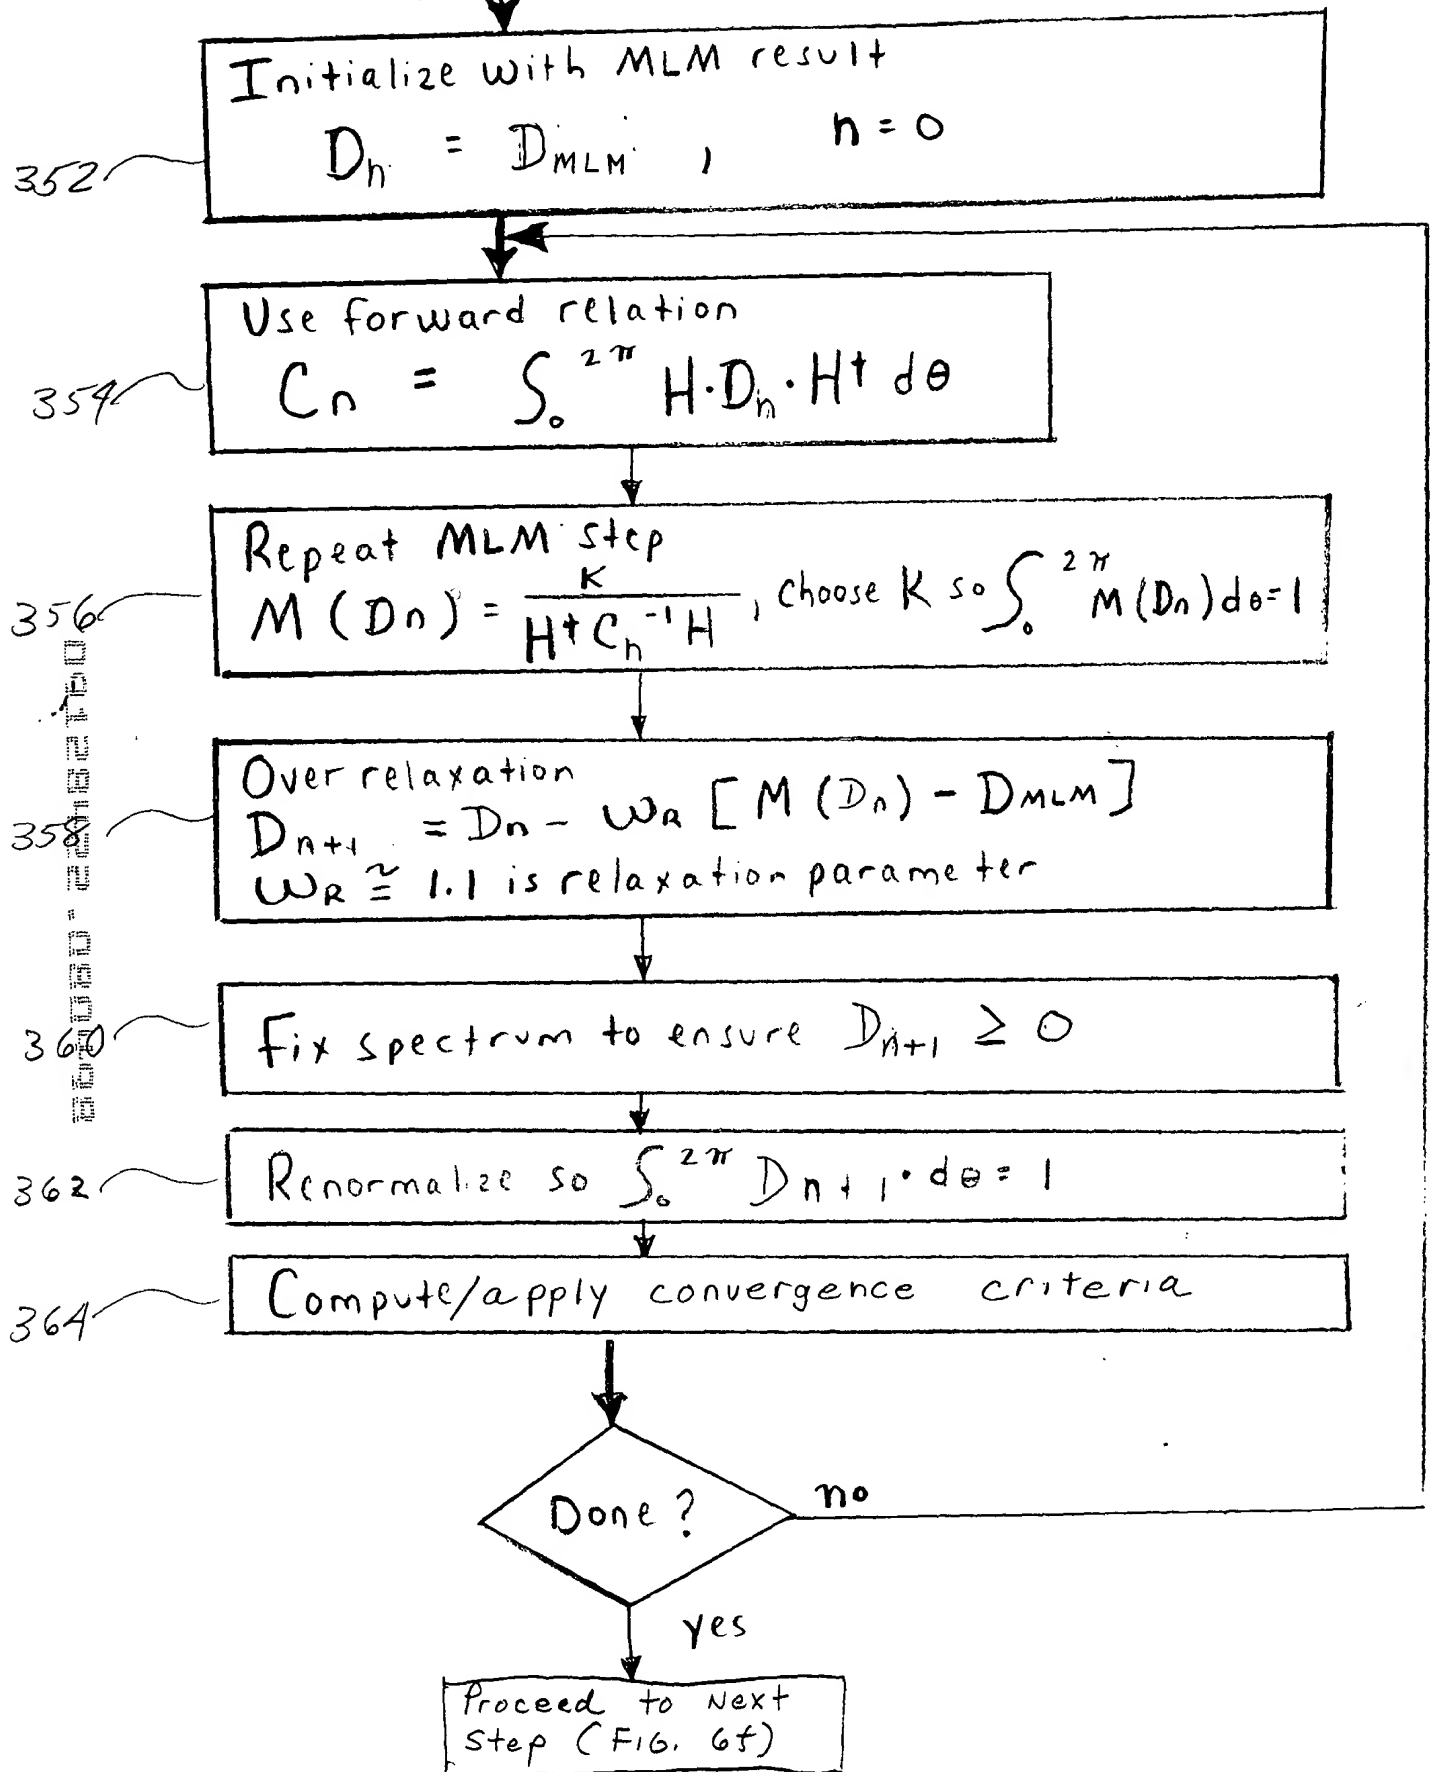 Initialize with MLM result
Dn = DMLM , n = 0
352
Use forward relation
Cn = ∫₀ 2π H·Dn·H† dθ
354
Repeat MLM step
M(Dn) = K / H†Cn⁻¹H , choose K so ∫₀ 2π M(Dn)dθ=1
356
Over relaxation
Dn+1 = Dn - ωR [M(Dn) - DMLM]
358
ωR ≅ 1.1 is relaxation parameter
Fix spectrum to ensure Dn+1 ≥ 0
360
Renormalize so ∫₀ 2π Dn+1·dθ=1
362
Compute/apply convergence criteria
364
Done?
no
yes
Proceed to Next
Step (FIG. 6f)